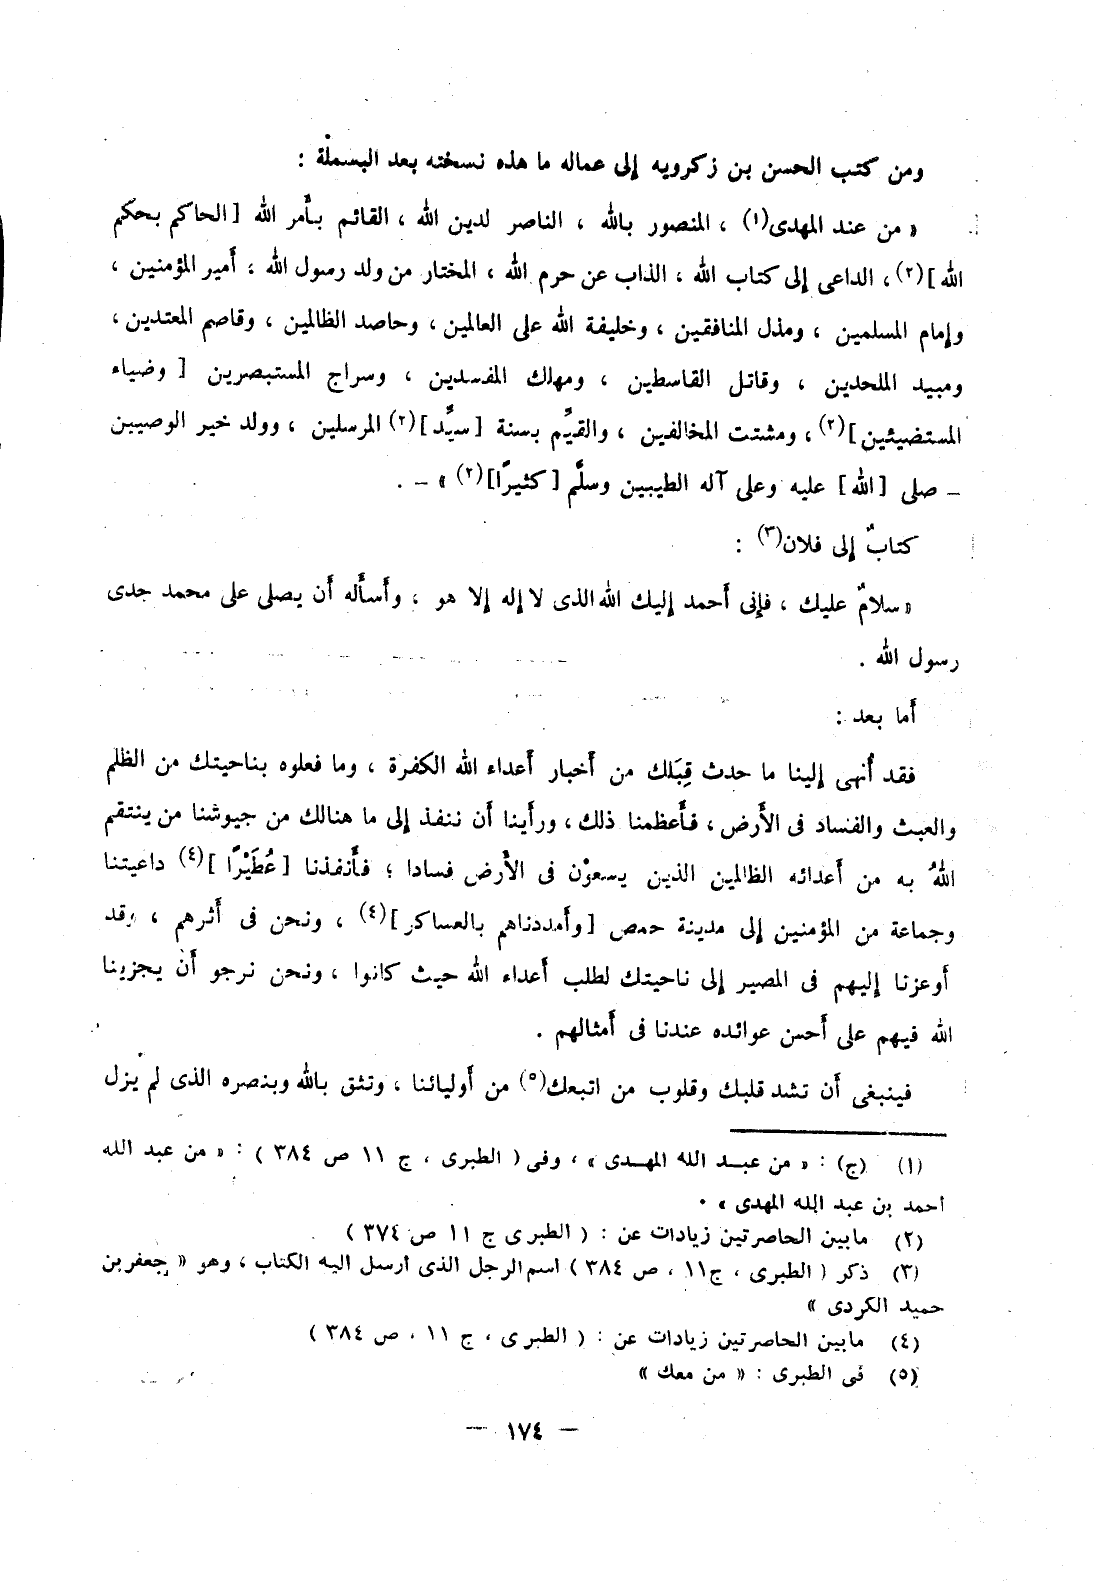 ومن كتب الحسن بن زكرويه إلى عماله ما هذه نسخته بعد البسملة :
« من عند المهدى(١) ، المنصور بالله ، الناصر لدين الله ، القائم بأمر الله [ الحاكم بحكم
الله ](٢) ، الداعى إلى كتاب الله ، الذاب عن حرم الله ، المختار من ولد رسول الله ، أمير المؤمنين ،
وإمام المسلمين ، ومذل المنافقين ، وخليفة الله على العالمين ، وحاصد الظالمين ، وقاصم المعتدين ،
ومبيد الملحدين ، وقاتل القاسطين ، ومهلك المفسدين ، وسراج المستبصرين [ وضياء
المستضيئين ](٢) ، ومشتت المخالفين ، والقيِّم بسنة [ سيِّد ](٢) المرسلين ، وولد خير الوصيين
– صلى [ الله ] عليه وعلى آله الطيبين وسلَّم [ كثيرًا ](٢) » – .
كتابٌ إلى فلان(٣) :
« سلامٌ عليك ، فإنى أحمد إليك الله الذى لا إله إلا هو ، وأسأله أن يصلى على محمد جدى
رسول الله .
أما بعد :
فقد أُنهى إلينا ما حدث قِبَلك من أخبار أعداء الله الكفرة ، وما فعلوه بناحيتك من الظلم
والعبث والفساد فى الأرض ، فأعظمنا ذلك ، ورأينا أن ننفذ إلى ما هنالك من جيوشنا من ينتقم
اللهُ به من أعدائه الظالمين الذين يسعوْن فى الأرض فسادا ؛ فأنفذنا [ عُطَيْرًا ](٤) داعيتنا
وجماعة من المؤمنين إلى مدينة حمص [ وأمددناهم بالعساكر ](٤) ، ونحن فى أثرهم ، وقد
أوعزنا إليهم فى المصير إلى ناحيتك لطلب أعداء الله حيث كانوا ، ونحن نرجو أن يجزينا
الله فيهم على أحسن عوائده عندنا فى أمثالهم .
فينبغى أن تشد قلبك وقلوب من اتبعك(٥) من أوليائنا ، وتثق بالله وبنصره الذى لم يزل
(١) (ج) : « من عبد الله المهدى » ، وفى ( الطبرى ، ج ١١ ص ٣٨٤ ) : « من عبد الله
أحمد بن عبد الله المهدى » .
(٢) مابين الحاصرتين زيادات عن : ( الطبرى ج ١١ ص ٣٧٤ )
(٣) ذكر ( الطبرى ، ج١١ ، ص ٣٨٤ ) اسم الرجل الذى أرسل اليه الكتاب ، وهو « جعفر بن
حميد الكردى »
(٤) مابين الحاصرتين زيادات عن : ( الطبرى ، ج ١١ ، ص ٣٨٤ )
(٥) فى الطبرى : « من معك »
— ١٧٤ —